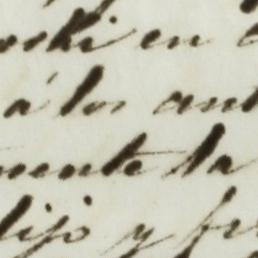 oski en
á los ant
mente la
dijo y fr